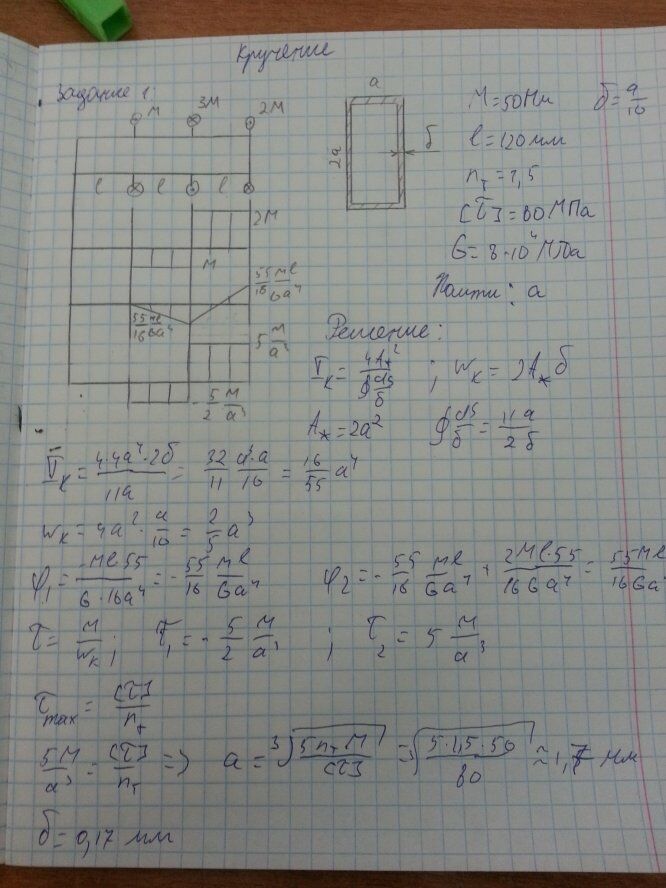 Кручение
Задание 1:
M 3M 2M
l l l
2M
M
55/16 Ml/Ga⁴
55/16 Ml/Ga⁴
5 M/a³
- 5/2 M/a³
a
2a
δ
M=50Нм δ=a/10
l=120мм
nт=1,5
[τ]=80МПа
G=8·10⁴МПа
Найти: a
Решение:
Iк = 4A*²/∮ds/δ ; Wк = 2A*δ
A* = 2a² ∮ds/δ = 11a/2δ
Iк = 4·4a⁴·2δ/11a = 32/11 a³·a/10 = 16/55 a⁴
Wк = 4a²·a/10 = 2/5 a³
φ₁ = -Ml·55/G·16a⁴ = - 55/16 Ml/Ga⁴ φ₂ = - 55/16 Ml/Ga⁴ + 2Ml·55/16Ga⁴ = 55Ml/16Ga⁴
τ = M/Wк ; τ₁ = - 5/2 M/a³ ; τ₂ = 5 M/a³
τmax = [τ]/nт
5M/a³ = [τ]/nт => a = ³√5nтM/[τ] = ³√5·1,5·50/80 ≈ 1,7 мм
δ = 0,17 мм